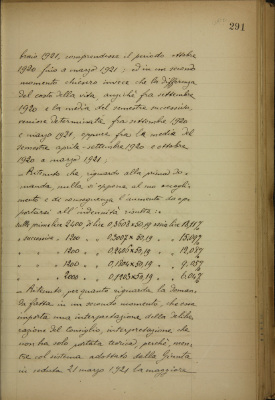 291
braio 1921, comprendesse il periodo ottobre
1920 fino a marzo 1921; ed in un secondo
momento chiesero invece che la differenza
del costo della vita, anziché fra settembre
1920 e la media del semestre successivo,
venisse determinata, fra settembre 1920
e marzo 1921, oppure fra la media del
semestre aprile-settembre 1920 e ottobre
1920 a marzo 1921;
"Ritenuto che riguardo alla prima do-
manda, nulla s'oppone al suo accogli-
mento e di conseguenza l'aumento da ap-
portarsi all'indennità risulta:
sulle prime lire 2400 di lire 0.3608 x 50,19
" successive " 1200 " 0.3007 x 50,19 " 15.09%
" " 1200 " x 50,19 "
" " 1200 " x 50,19 "
" " 2000 " x 50,19 "
"Ritenuto, per quanto riguarda la doman-
da fatta in un secondo momento, che essa
importa una interpretazione della delibe-
razione del Consiglio, interpretazione che
non ha solo portata teorica, perché, men-
tre col sistema adottato dalla Giunta
in seduta 21 marzo 1921 la maggiore